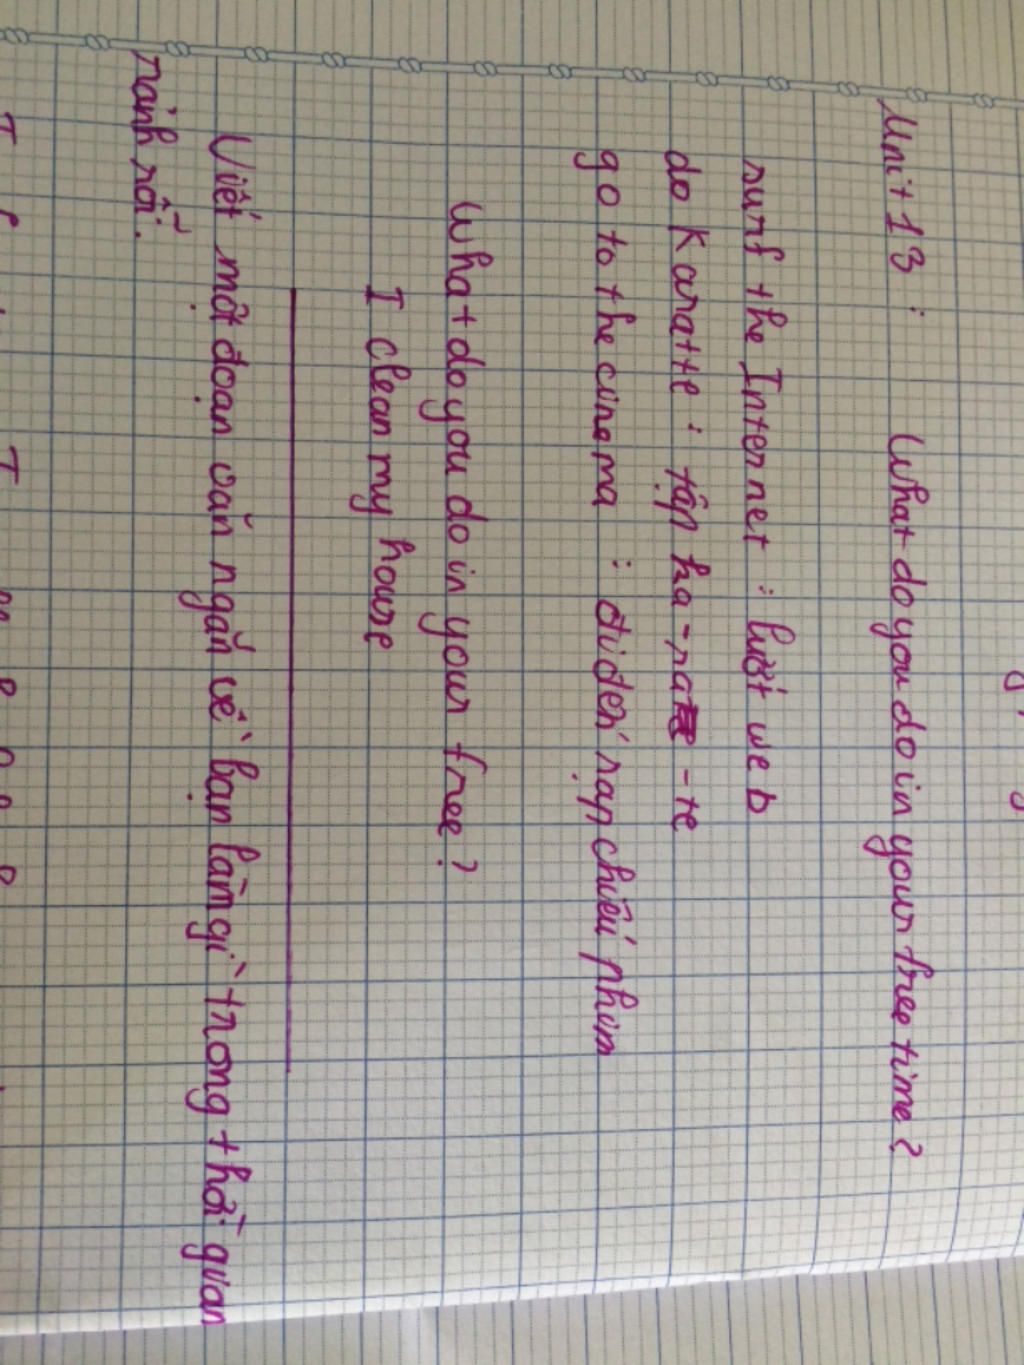 Unit 13 : What do you do in your free time?
surf the Internet : lướt web
do Karatte : tập ka-ra-te
go to the cinema : đi đến rạp chiếu phim
What do you do in your free?
I clean my house
Viết một đoạn văn ngắn về bạn làm gì trong thời gian
rảnh rỗi.